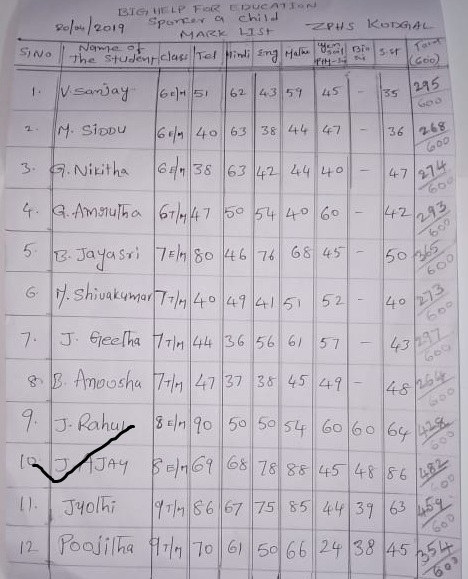 BIG HELP FOR EDUCATION
20/04/2019 Sponcer a child ZPHS KODGAL
MARK LIST
S/No Name of The Student Class Tel Hindi Eng Maths Bio S.st Total (600)
1. V. Sanjay 6E/m 51 62 43 59 45 - 35 295/600
2. M. SIDDU 6E/m 40 63 38 44 47 - 36 268/600
3. G. Nikitha 6E/m 38 63 42 44 40 - 47 274/600
4. G. Amrutha 6T/m 47 50 54 40 60 - 42 293/600
5. B. Jayasri 7E/m 80 46 76 68 45 - 50 365/600
6 M. Shivakumar 7T/m 40 49 41 51 52 - 40 273/600
7. J. Geetha 7T/m 44 36 56 61 57 - 43 297/600
8. B. Anoosha 7T/m 47 37 38 45 49 - 48 264/600
9. J. Rahul 8E/m 90 50 50 54 60 60 64 428/600
10 J. AJAY 8E/m 69 68 78 88 45 48 86 482/600
11. Jyothi 9T/m 86 67 75 85 44 39 63 459/600
12 Poojitha 9T/m 70 61 50 66 24 38 45 354/600